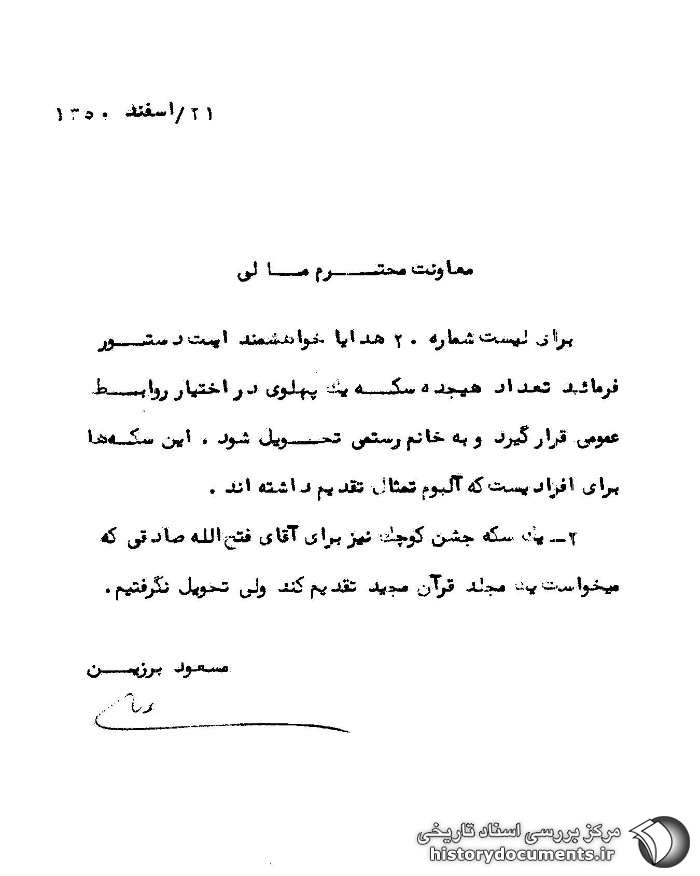 ۲۱/اسفند ۱۳۵۰
معاونت محترم مالی
برای لیست شماره ۲۰ هدایا خواهشمند است دستور
فرمائید تعداد هیجده سکه یک پهلوی در اختیار روابط
عمومی قرار گیرد و به خانم رستمی تحویل شود . این سکه‌ها
برای افرادیست که آلبوم تمثال تقدیم داشته اند .
۲ـ یک سکه جشن کوچک نیز برای آقای فتح‌الله صادقی که
میخواست یک مجلد قرآن مجید تقدیم کند ولی تحویل نگرفتیم .
مسعود برزین
مرکز بررسی اسناد تاریخی
historydocuments.ir